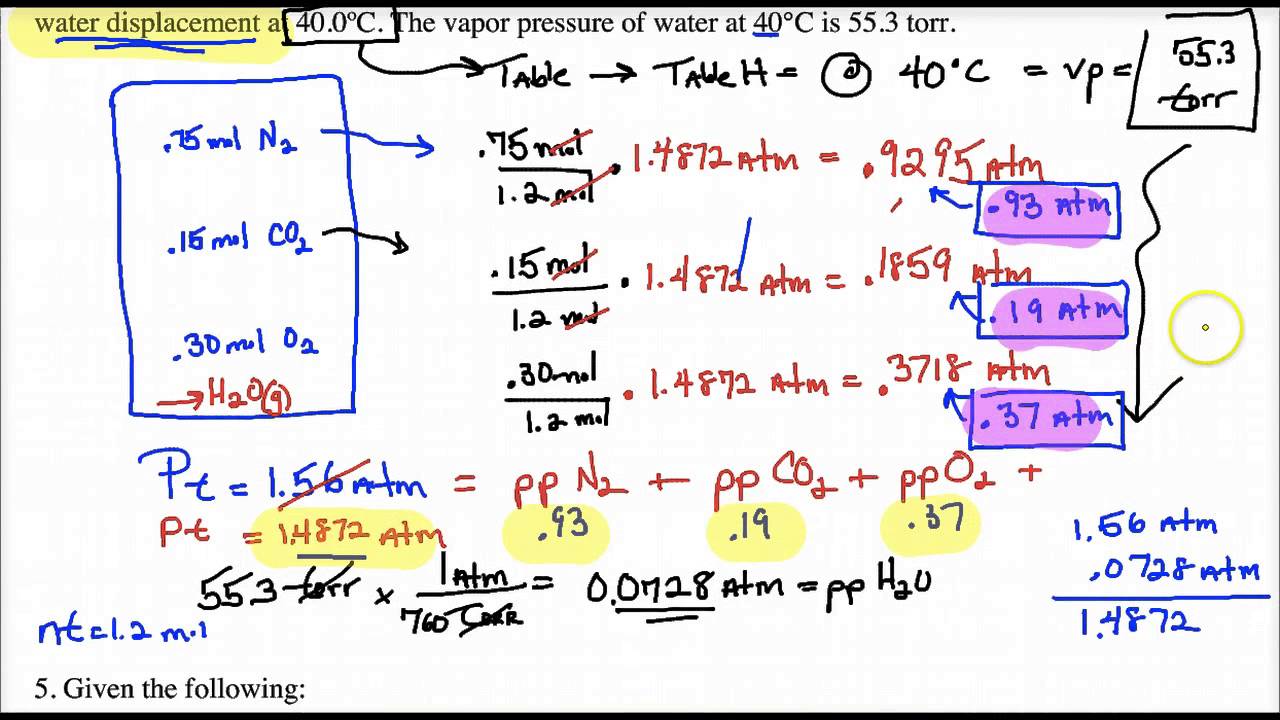 water displacement at 40.0°C. The vapor pressure of water at 40°C is 55.3 torr.
TAble → TAble H = @ 40°C = vp = 55.3 torr
.75 mol N2
.75 mol
1.2 mol
· 1.4872 Atm = .9295 Atm
.93 Atm
.15 mol CO2
.15 mol
1.2 mol
· 1.4872 Atm = .1859 Atm
.19 Atm
.30 mol O2
→ H2O(g)
.30 mol
1.2 mol
· 1.4872 Atm = .3718 Atm
.37 Atm
Pt = 1.56 Atm = pp N2 + pp CO2 + pp O2 +
Pt = 1.4872 Atm .93 .19 .37
55.3 torr x 1 Atm
760 Torr
= 0.0728 Atm = pp H2O
1.56 Atm
.0728 Atm
1.4872
nt = 1.2 mol
5. Given the following: